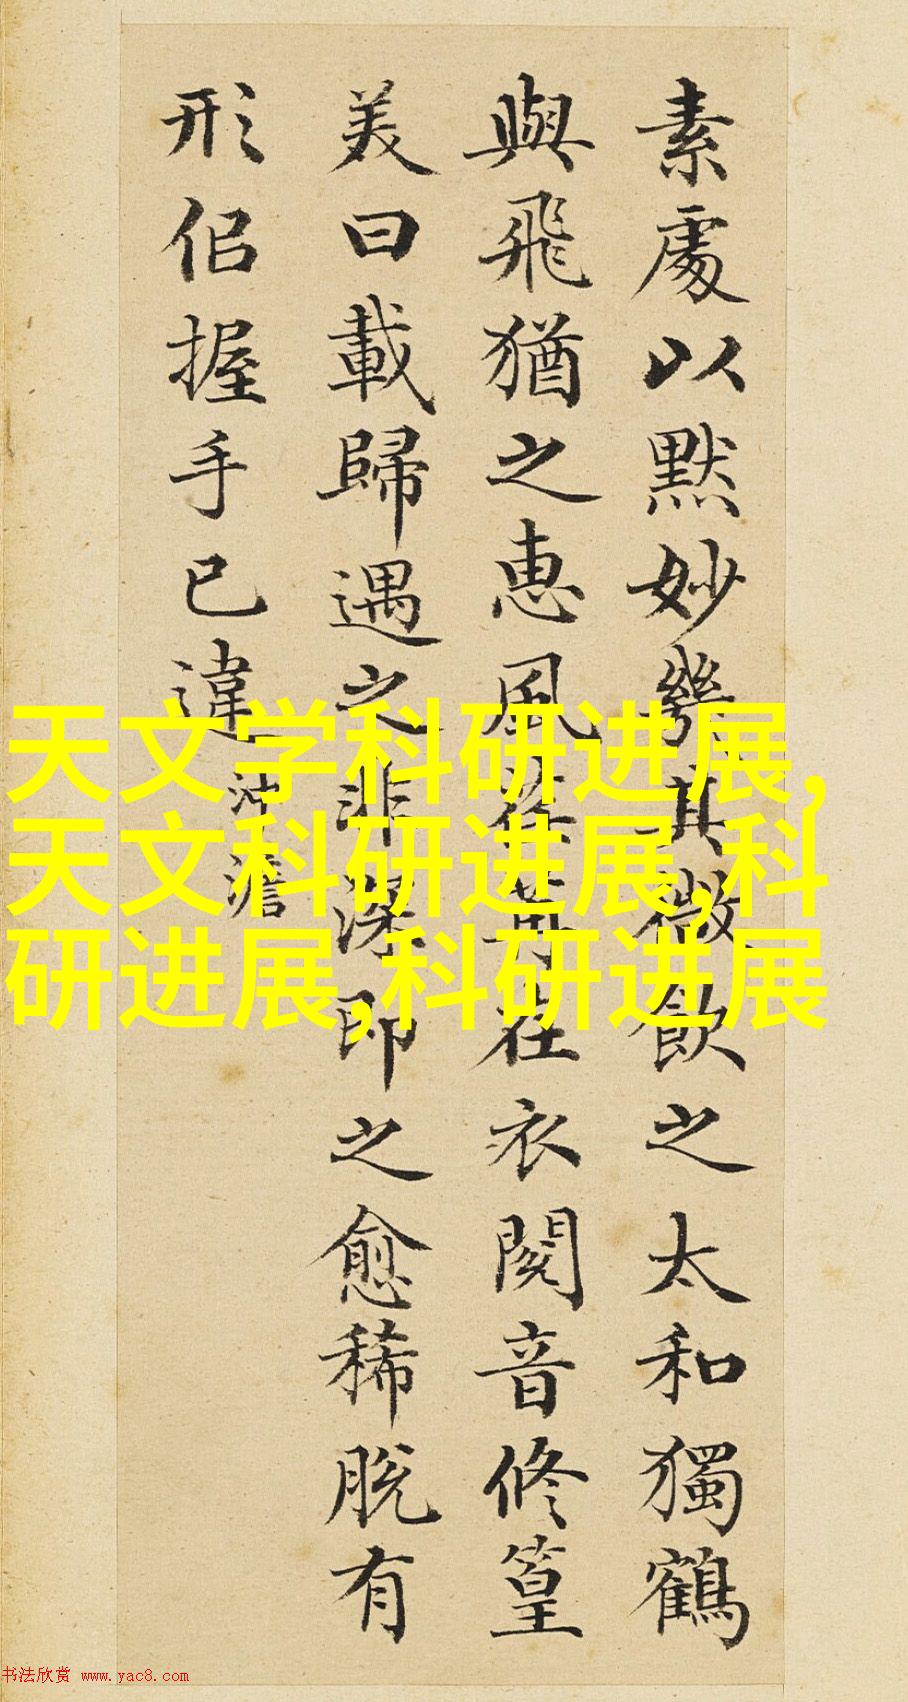 素處以默妙幾其微飲之太和獨鶴
與飛猶之惠風荏苒在衣閱音修篁
美曰載歸遇之非深即之愈稀脫有
形佀握手已違
沖澹
天文学科研进展,
天文科研进展,科
研进展,科研进展
书法欣赏 www.yac8.com